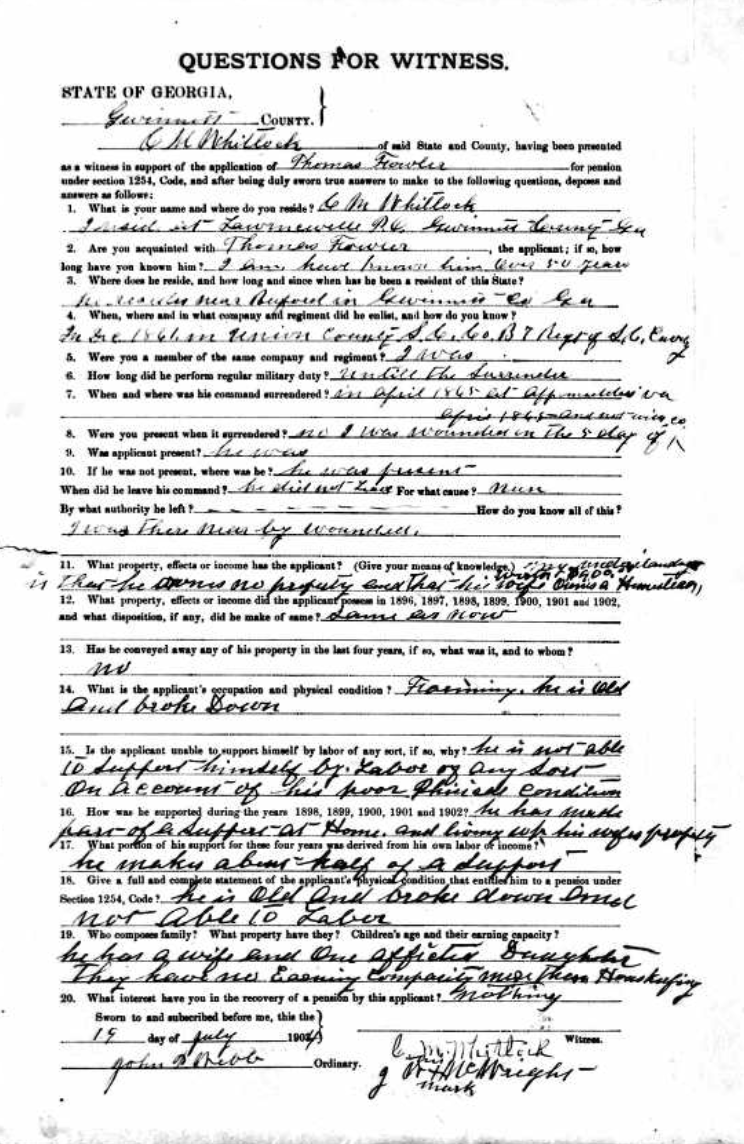 QUESTIONS FOR WITNESS.
STATE OF GEORGIA,
Gwinnett COUNTY. }
C M Whitlock of said State and County, having been presented
as a witness in support of the application of Thomas Fowler for pension
under section 1254, Code, and after being duly sworn true answers to make to the following questions, deposes and
answers as follows:
1. What is your name and where do you reside? C M Whitlock
I resid at Lawrenceville P.O. Gwinnett County Ga
2. Are you acquainted with Thomas Fowler, the applicant; if so, how
long have you known him? I am, have known him over 50 years
3. Where does he reside, and how long and since when has he been a resident of this State?
he resides near Buford in Gwinnett Co Ga
4. When, where and in what company and regiment did he enlist, and how do you know?
In Dec 1861. in Union County S.C. Co. B 7 Regt of S.C. Cavry
5. Were you a member of the same company and regiment? I was
6. How long did he perform regular military duty? Untill the Surrender
7. When and where was his command surrendered? in April 1865 at Appomattox va
April 1865 and not with co.
8. Were you present when it surrendered? no I was wounded on the 5 day of
9. Was applicant present? he was
10. If he was not present, where was he? he was present
When did he leave his command? he did not leave For what cause? nun
By what authority he left? — — — — — — How do you know all of this?
I was there near by wounded.
11. What property, effects or income has the applicant? (Give your means of knowledge.) my understanding
is that he owns no property and that his wife owns a Homestead,
worth $400.
12. What property, effects or income did the applicant possess in 1896, 1897, 1898, 1899, 1900, 1901 and 1902,
and what disposition, if any, did he make of same? Same as now
13. Has he conveyed away any of his property in the last four years, if so, what was it, and to whom?
no
14. What is the applicant's occupation and physical condition? Farming. he is Old
and broke Down
15. Is the applicant unable to support himself by labor of any sort, if so, why? he is not able
to support himself by Labor of any Sort
On account of his poor Phisical condition
16. How was he supported during the years 1898, 1899, 1900, 1901 and 1902? he has made
part of a support at Home. and living on his wifes property
17. What portion of his support for these four years was derived from his own labor or income?
he makes about half of a support
18. Give a full and complete statement of the applicant's physical condition that entitles him to a pension under
Section 1254, Code? he is Old and broke down and
not Able to Labor
19. Who composes family? What property have they? Children's age and their earning capacity?
he has a wife and One afflicted Daughter
They have no Earning Compacity more than Houskeeping
20. What interest have you in the recovery of a pension by this applicant? Nothing
Sworn to and subscribed before me, this the }
19 day of July 1904
C. M. Whitlock Witness.
John P Webb Ordinary.
his
J W x McWright
mark